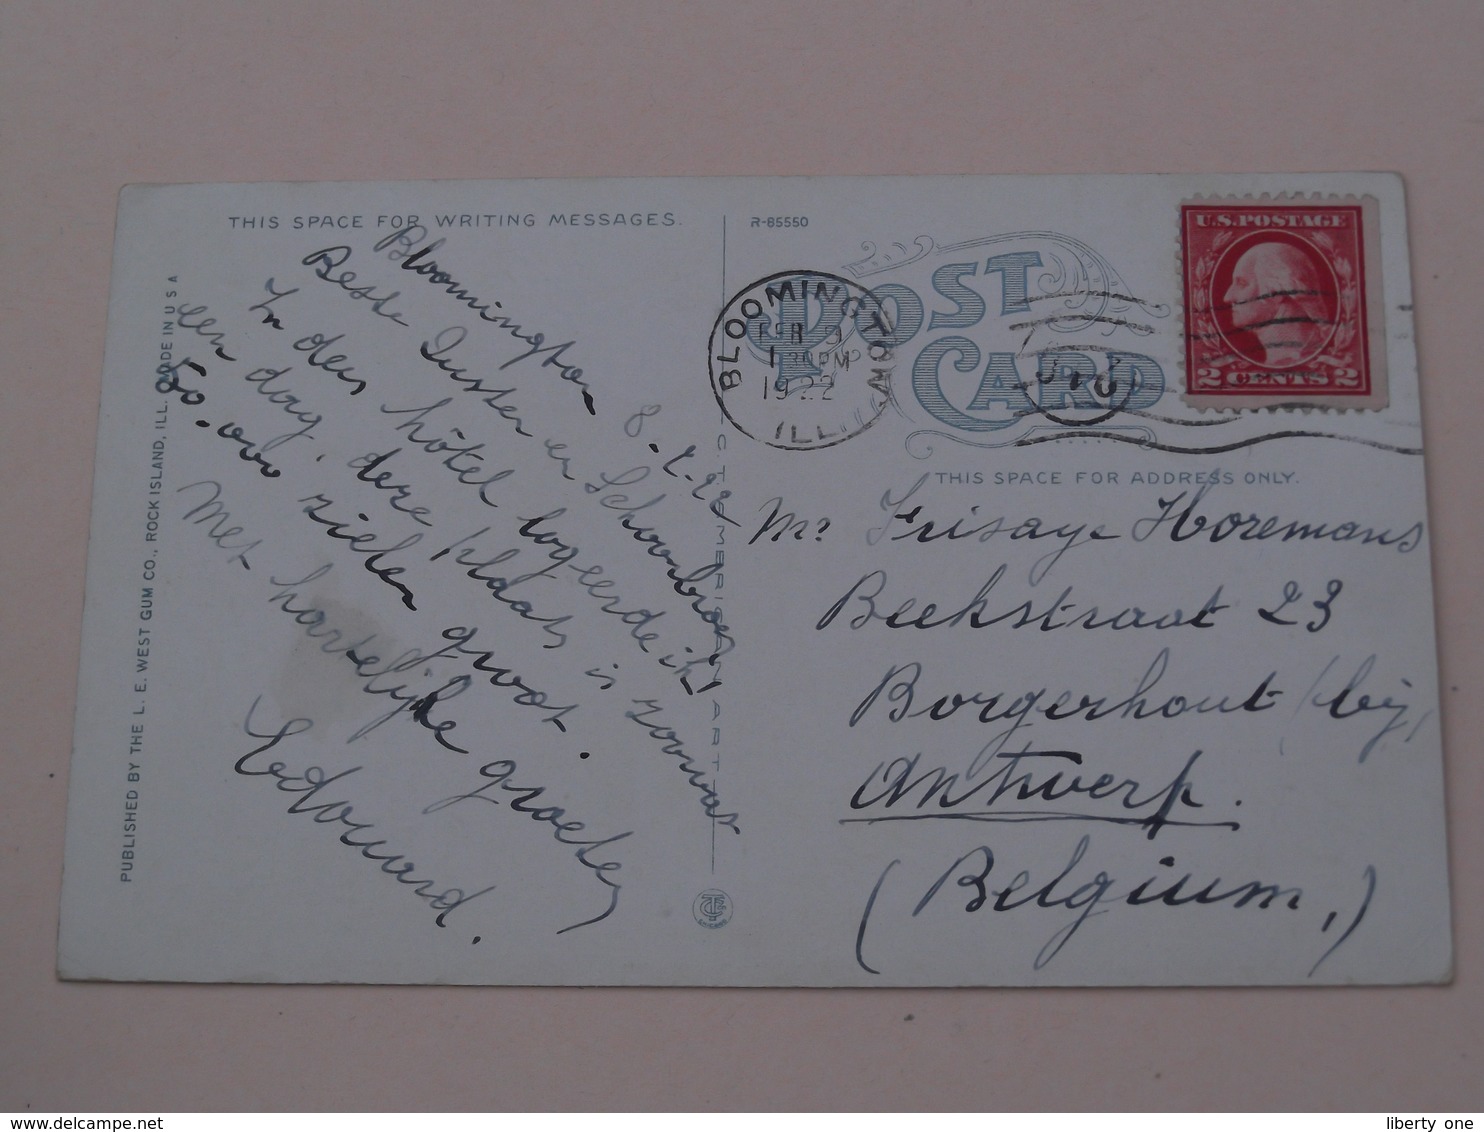 THIS SPACE FOR WRITING MESSAGES.
Bloomington 8-2-22
Beste Zuster en Schoonbroer,
In des hôtel logeerde ik
een dag, deze plaats is zoowat
50.000 zielen groot.
Met hartelijke groeten
Edouard.
PUBLISHED BY THE L. E. WEST GUM CO., ROCK ISLAND, ILL. MADE IN U S A
C. T. AMERICAN ART
R-85550
POST CARD
BLOOMINGTON
FEB 9
1 30 PM
1922
ILL.
U.S. POSTAGE
2 CENTS 2
THIS SPACE FOR ADDRESS ONLY.
Mr Frisaye Horemans
Beekstraat 23
Borgerhout (bij
Antwerp.
(Belgium,)
liberty one